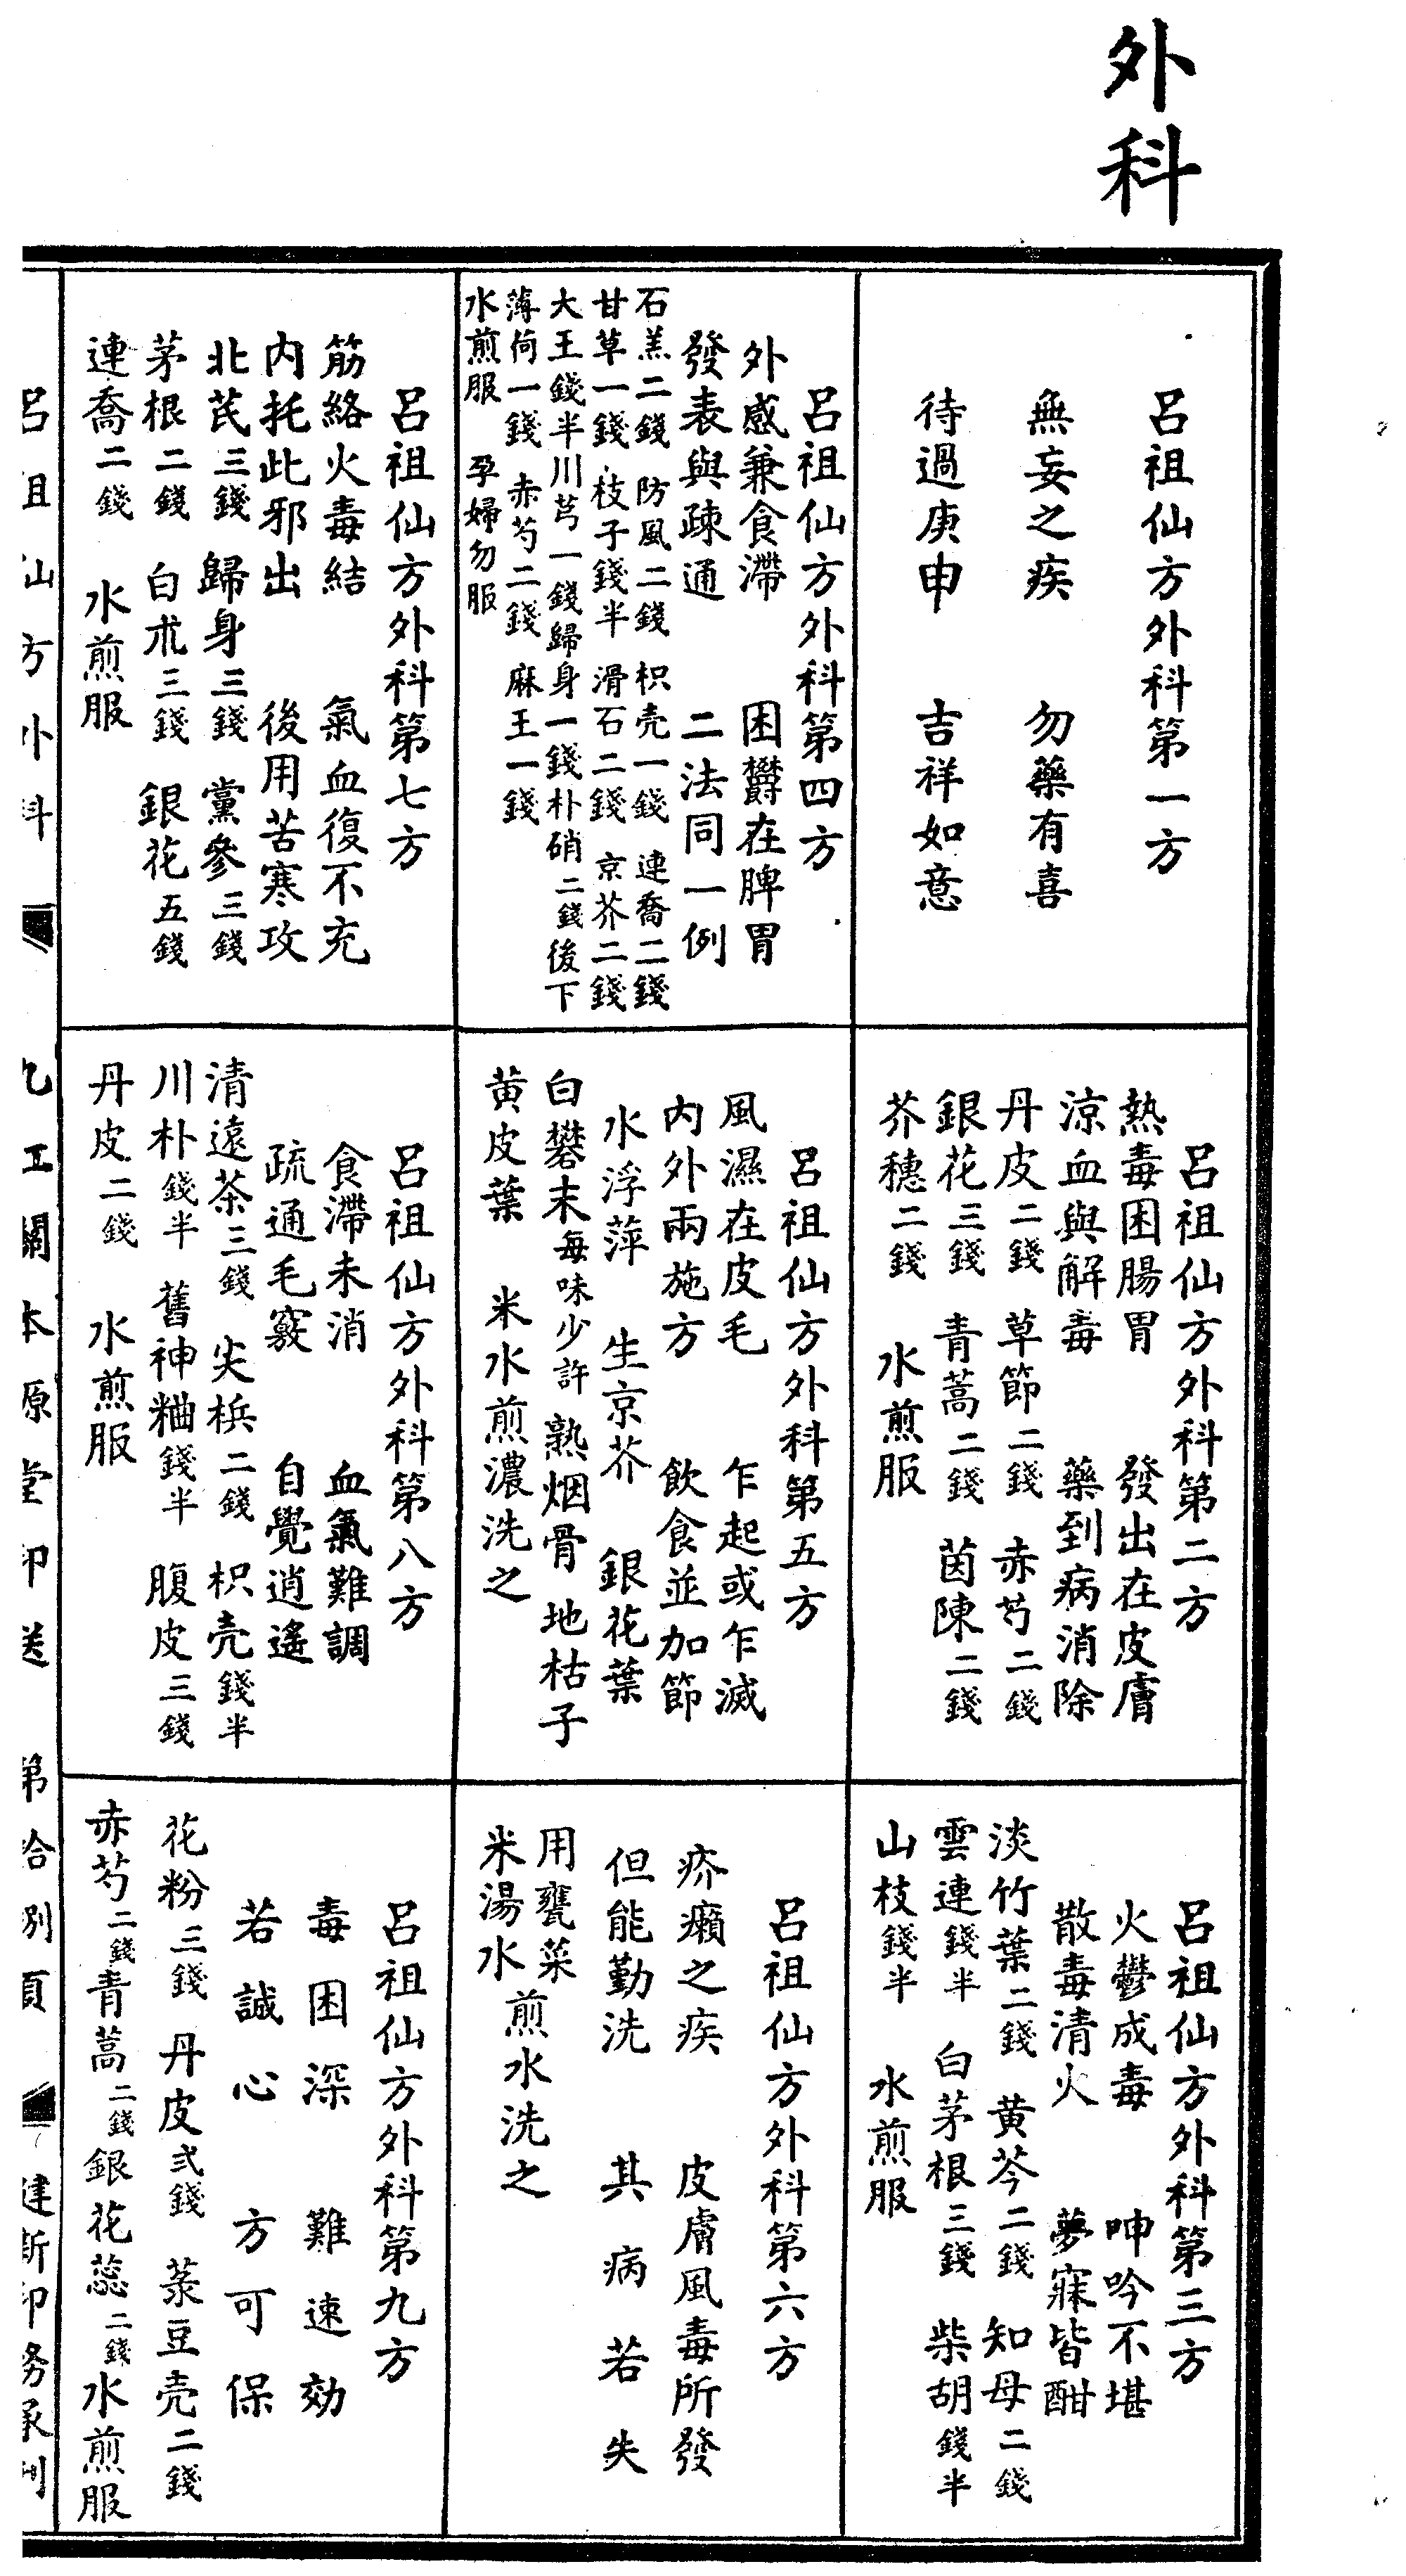 外科
呂祖仙方外科第一方
無妄之疾 勿藥有喜
待過庚申 吉祥如意
呂祖仙方外科第二方
熱毒困腸胃 發出在皮膚
涼血與解毒 藥到病消除
丹皮二錢 草節二錢 赤芍二錢
銀花三錢 青蒿二錢 茵陳二錢
芥穗二錢 水煎服
呂祖仙方外科第三方
火鬱成毒 呻吟不堪
散毒清火 夢寐皆酣
淡竹葉二錢 黄芩二錢 知母二錢
雲連錢半 白茅根三錢 柴胡錢半
山枝錢半 水煎服
呂祖仙方外科第四方
外感兼食滯 困欝在脾胃
發表與疎通 二法同一例
石羔二錢 防風二錢 枳壳一錢 連喬二錢
甘草一錢 枝子錢半 滑石二錢 京芥二錢
大王錢半 川芎一錢 歸身一錢 朴硝二錢後下
薄荷一錢 赤芍二錢 麻王一錢
水煎服 孕婦勿服
呂祖仙方外科第五方
風濕在皮毛 乍起或乍滅
内外兩施方 飲食並加節
水浮萍 生京芥 銀花葉
白礬末每味少許 熟烟骨 地枯子
黄皮葉 米水煎濃洗之
呂祖仙方外科第六方
疥癩之疾 皮膚風毒所發
但能勤洗 其病若失
用甕菜
米湯水煎水洗之
呂祖仙方外科第七方
筋絡火毒結 氣血復不充
内托此邪出 後用苦寒攻
北芪三錢 歸身三錢 黨參三錢
茅根二錢 白朮三錢 銀花五錢
連喬二錢 水煎服
呂祖仙方外科第八方
食滯未消 血氣難調
疏通毛竅 自覺逍遙
清遠茶三錢 尖梹二錢 枳壳錢半
川朴錢半 舊神粬錢半 腹皮三錢
丹皮二錢 水煎服
呂祖仙方外科第九方
毒困深 難速効
若誠心 方可保
花粉三錢 丹皮弍錢 菉豆壳二錢
赤芍二錢 青蒿二錢 銀花蕊二錢 水煎服
呂祖仙方外科 九江關本源堂印送 第拾捌頁 建新印務承刊